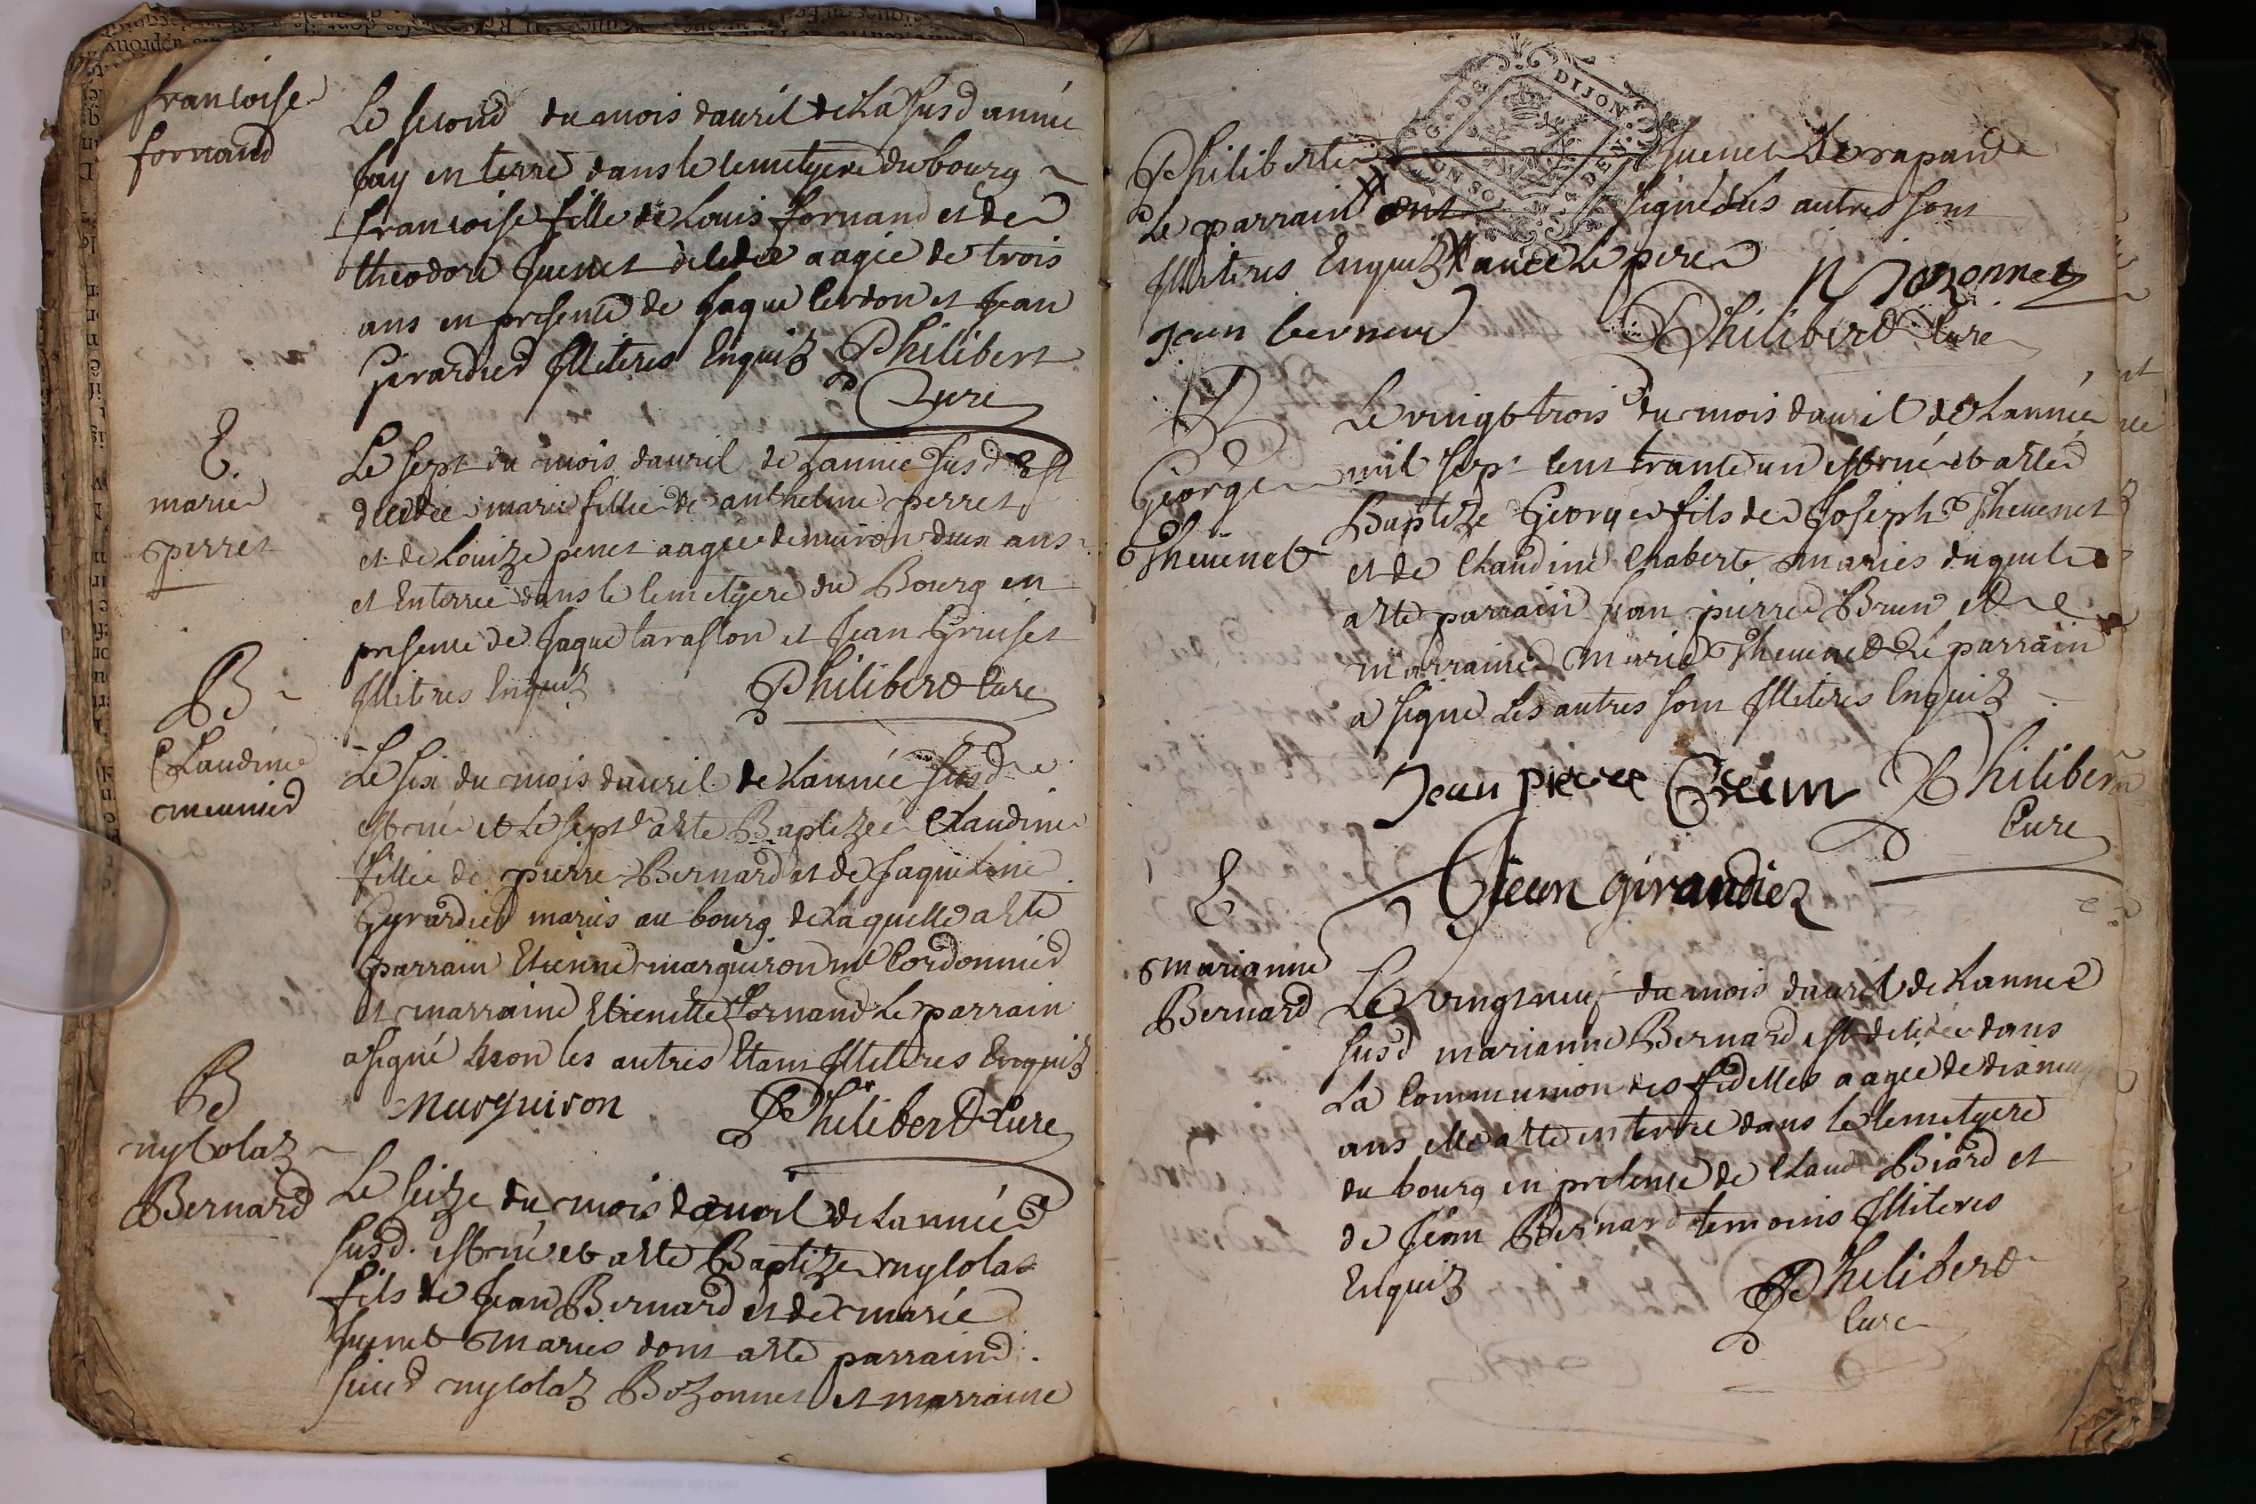 francoise
fornand
Le second du mois dauril de La susd année
Jay enterré dans le cemetyere du bourg
francoise fille de Louis fornand et de
theodore Juenet decedee aagée de trois
ans en presence de Jaque Cerdon et Jean
Girardier Illiteres Enquiz Philibert
Cure
E.
marie
perret
Le sept du mois dauril de Lannée susd Est
decedee marie fillie de anthelme perret
et de Louize penet aagee denuiron deux ans
et Enterrée dans le cemetyere du Bourg en
presence de Jaque taraston et Jean Gruiset
Illitres Enquiz Philibert Cure
B
Claudine
meunier
Le six du mois dauril de Lannée susd
est née et Le sept a este Baptizée Claudine
fillie de pierre Bernard et de Jaqueline
Gyrardier mariés au bourg de Laquelle a esté
parrain Etienne marquiron me Cordonnier
et marraine Etienette fornand Le parrain
a signé Non les autres Etant Illiteres Enquiz
Marquiron Philibert Cure
B
nycolaz
Bernard
Le seize du mois dauril de Lannée
susd. est né et a este Baptize nycolas
fils de Jean Bernard et de marie
Juenet mariés dont a esté parrain
sieur nycolaz Bozonnet et marraine
Philiberte Juenet
Le parrain signé Les autres sont
Illiteres Enquiz auec Le pere
N Bozonnet
Jean bernard Philibert Cure
B
George
Theuenet
Le vingt trois du mois dauril de Lannée
mil sept cent trante un est né et a este
Baptize George fils de Joseph Theuenet
et de Claudine Chaberte mariés duquel
a este parrain Jean pierre Brun et
marraine Marie Theuenet Le parrain
a signe Les autres sont Illiteres Enquiz
Jean pierre Breun Philibert
Cure
Jean girandiez
E
marianne
Bernard
Le vingt neuf du mois dauril de Lannee
susd marianne Bernard est decedée dans
La Communion des fidelles aagée de dix neuf
ans elle a este enterrée dans le cemetyere
du bourg en presence de Claud Biard et
de Jean Bernard temoins Illiteres
Enquiz Philibert
Cure